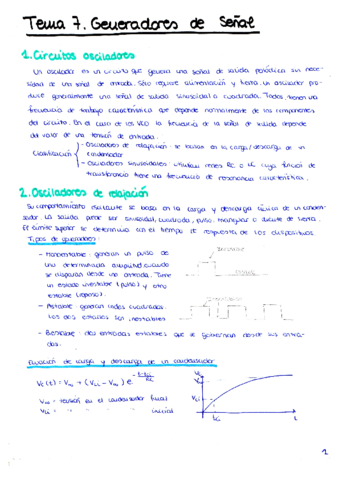 Tema 7. Generadores de Señal
1. Circuitos osciladores
Un oscilador es un circuito que genera una señal de salida periódica sin nece-
sidad de una señal de entrada. Sólo requiere alimentación y tierra. Un oscilador pro-
duce generalmente una señal de salida sinusoidal o cuadrada. Todos tienen una
frecuencia de trabajo característica que depende normalmente de los componentes
del circuito. En el caso de los VCO la frecuencia de la señal de salida depende
del valor de una tensión de entrada.
Clasificación
- Osciladores de relajación: se basan en la carga/descarga de un
condensador
- Osciladores sinusoidales: utilizan redes RC o LC cuya función de
transferencia tiene una frecuencia de resonancia característica.
2. Osciladores de relajación
Su comportamiento oscilante se basa en la carga y descarga cíclica de un conden-
sador. La salida puede ser sinusoidal, cuadrada, pulso, triangular o diente de sierra.
El límite superior se determina con el tiempo de respuesta de los dispositivos.
Tipos de generadores:
- Monoestable: generan un pulso de
una determinada amplitud cuando
se disparan desde una entrada. Tiene
un estado inestable (pulso) y otro
estable (reposo).
- Astable: generan ondas cuadradas.
Los dos estados son inestables
- Biestable: dos entradas estables que se gobiernan desde sus entra-
das.
Ecuación de carga y descarga de un condensador
Vc(t) = V∞ + (Vci - V∞) e
V∞ = tensión en el condensador final
Vci = " " " " inicial
Vc
Vci
t
1